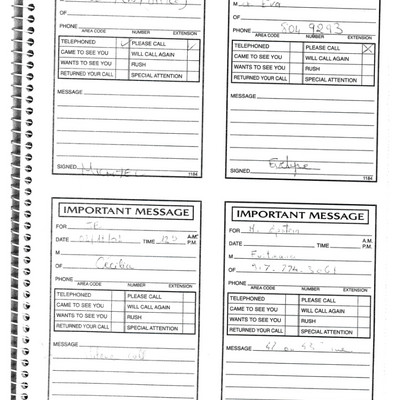 M Eva
OF
OF
PHONE 804 9293
PHONE
AREA CODE NUMBER EXTENSION
AREA CODE NUMBER EXTENSION
TELEPHONED ✓ PLEASE CALL ✓
TELEPHONED PLEASE CALL X
CAME TO SEE YOU WILL CALL AGAIN
CAME TO SEE YOU WILL CALL AGAIN
WANTS TO SEE YOU RUSH
WANTS TO SEE YOU RUSH
RETURNED YOUR CALL SPECIAL ATTENTION
RETURNED YOUR CALL SPECIAL ATTENTION
MESSAGE
MESSAGE
SIGNED 1184
SIGNED 1184
IMPORTANT MESSAGE
IMPORTANT MESSAGE
FOR JE
FOR
DATE TIME A.M. P.M.
DATE TIME A.M. P.M.
M Cecilia
M
OF
OF
PHONE
PHONE
AREA CODE NUMBER EXTENSION
AREA CODE NUMBER EXTENSION
TELEPHONED PLEASE CALL
TELEPHONED PLEASE CALL
CAME TO SEE YOU WILL CALL AGAIN
CAME TO SEE YOU WILL CALL AGAIN
WANTS TO SEE YOU RUSH
WANTS TO SEE YOU RUSH
RETURNED YOUR CALL SPECIAL ATTENTION
RETURNED YOUR CALL SPECIAL ATTENTION
MESSAGE
MESSAGE